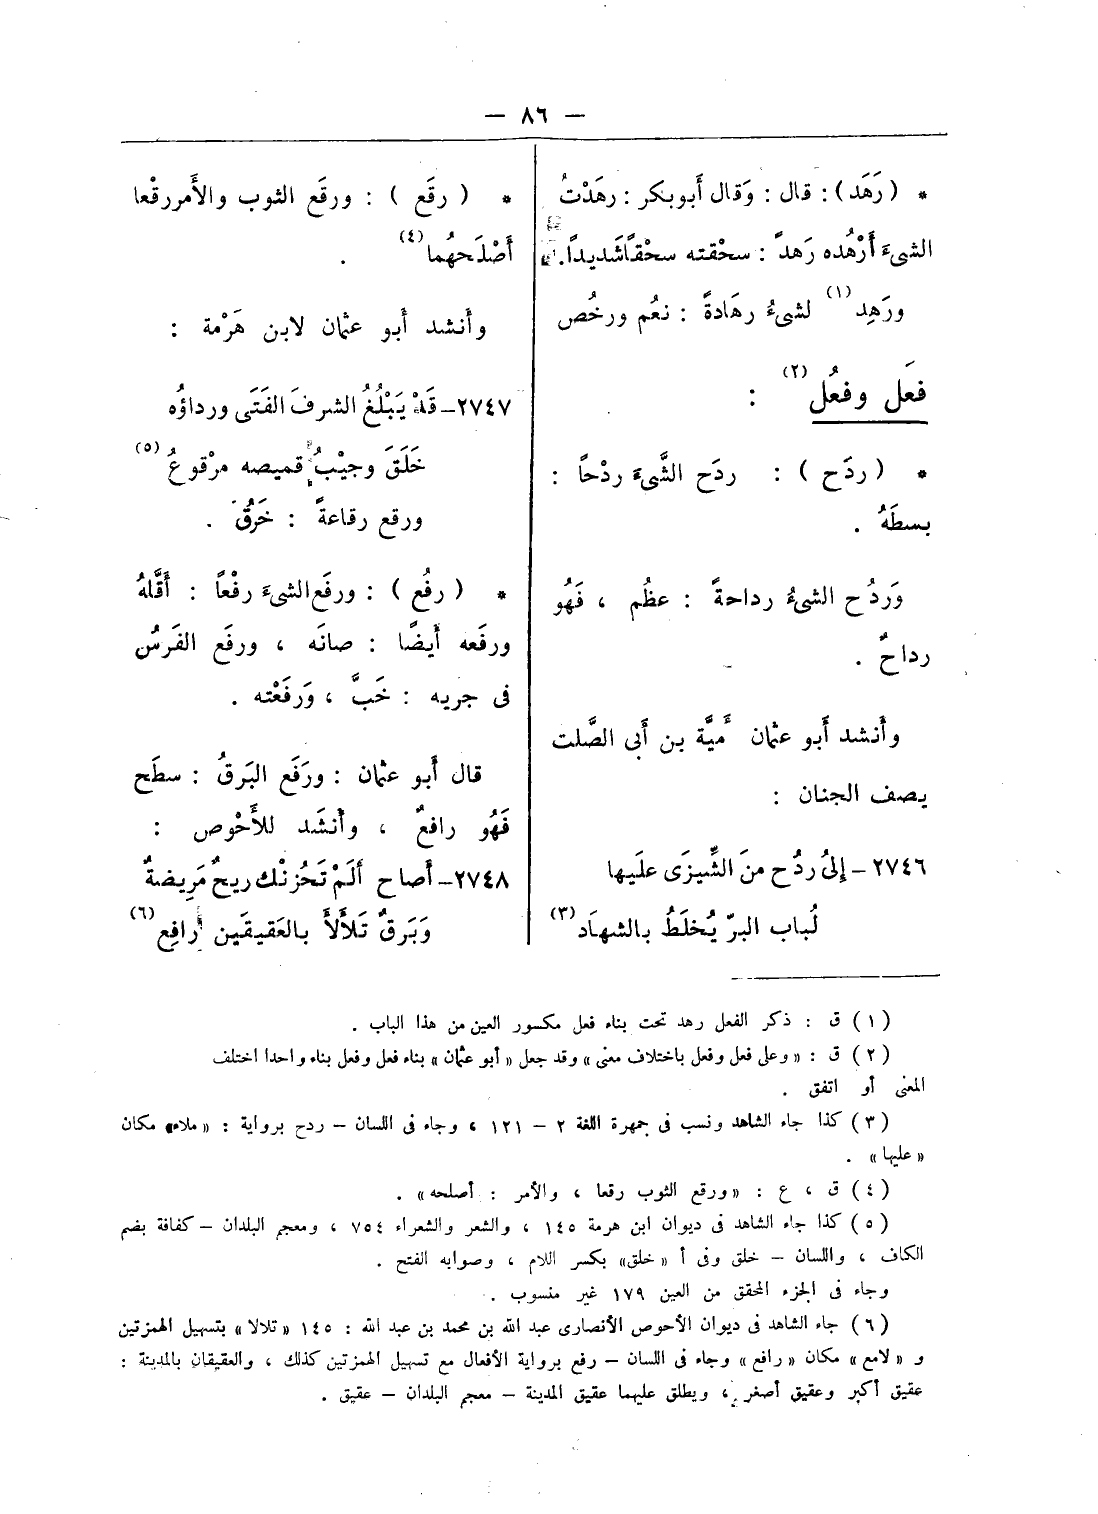 — ٨٦ —
* ( رَهَد ) : قال : وَقال أَبوبكر : رهَدْتُ
الشىءَ أَرْهُده رَهداً : سحْقته سحْقًاشَديدًا.
ورَهِد (١) لشىءُ رهَادةً : نعُم ورخُص
فعَل وفعُل (٢) :
* ( ردَح ) : ردَح الشَّىءَ ردْحاً :
بسطَهُ .
وَردُح الشىءُ رداحةً : عظُم ، فَهُو
رداحٌ .
وأَنشد أَبو عثمان أُميَّة بن أَبى الصَّلت
يصف الجنان :
٢٧٤٦ – إِلىُ ردُح منَ الشِّيزَى علَيها
لُباب البرّ يُخلَطُ بالشهاَد (٣)
* ( رقَع ) : ورقَع الثوب والأَمررقْعا
أَصْلَحهُما (٤) .
وأَنشد أَبو عثمان لابن هَرْمة :
٢٧٤٧– قَدْ يَبْلُغُ الشرفَ الفَتَى ورداؤُه
خَلَقَ وجيْبُ قميصه مرْقوعُ (٥)
ورقع رقاعةً : خَرُقَ .
* ( رفُع ) : ورفَع الشىءَ رفْعاً : أَقَّلهُ
ورفَعه أَيضًا : صانَه ، ورفَع الفَرسُ
فى جريه : خَبَّ ، وَرفَعْته .
قال أَبو عثمان : ورَفَع البَرقُ : سطَح
فَهُو رافعٌ ، وأَنشَد للأَحْوص :
٢٧٤٨– أَصاح أَلَمْ تَحُزنْك ريحٌ مَرِيضةٌ
وَبَرقٌ تَلأَلأَ بالعَقيقَين رافِع (٦)
(١) ق : ذكر الفعل رهد تحت بناء فعل مكسور العين من هذا الباب .
(٢) ق : «وعلى فعل وفعل باختلاف معنى» وقد جعل «أبو عثمان» بناء فعل وفعل بناء واحدا اختلف
المعنى أو اتفق .
(٣) كذا جاء الشاهد ونسب فى جمهرة اللغة ٢ – ١٢١ ، وجاء فى اللسان – ردح برواية : «ملاء» مكان
«عليها» .
(٤) ق ، ع : «ورقع الثوب رقعا ، والأمر : أصلحه» .
(٥) كذا جاء الشاهد فى ديوان ابن هرمة ١٤٥ ، والشعر والشعراء ٧٥٤ ، ومعجم البلدان – كفافة بضم
الكاف ، واللسان – خلق وفى أ «خلق» بكسر اللام ، وصوابه الفتح .
وجاء فى الجزء المحقق من العين ١٧٩ غير منسوب .
(٦) جاء الشاهد فى ديوان الأحوص الأنصارى عبد الله بن محمد بن عبد الله : ١٤٥ «تلالا» بتسهيل الهمزتين
و «لامع» مكان «رافع» وجاء فى اللسان – رفع برواية الأفعال مع تسهيل الهمزتين كذلك ، والعقيقان بالمدينة :
عقيق أكبر وعقيق أصغر ، ويطلق عليهما عقيق المدينة – معجم البلدان – عقيق .